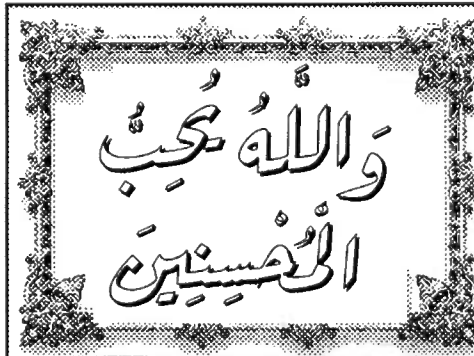 وَاللَّهُ يُحِبُّ
الْمُحْسِنِينَ